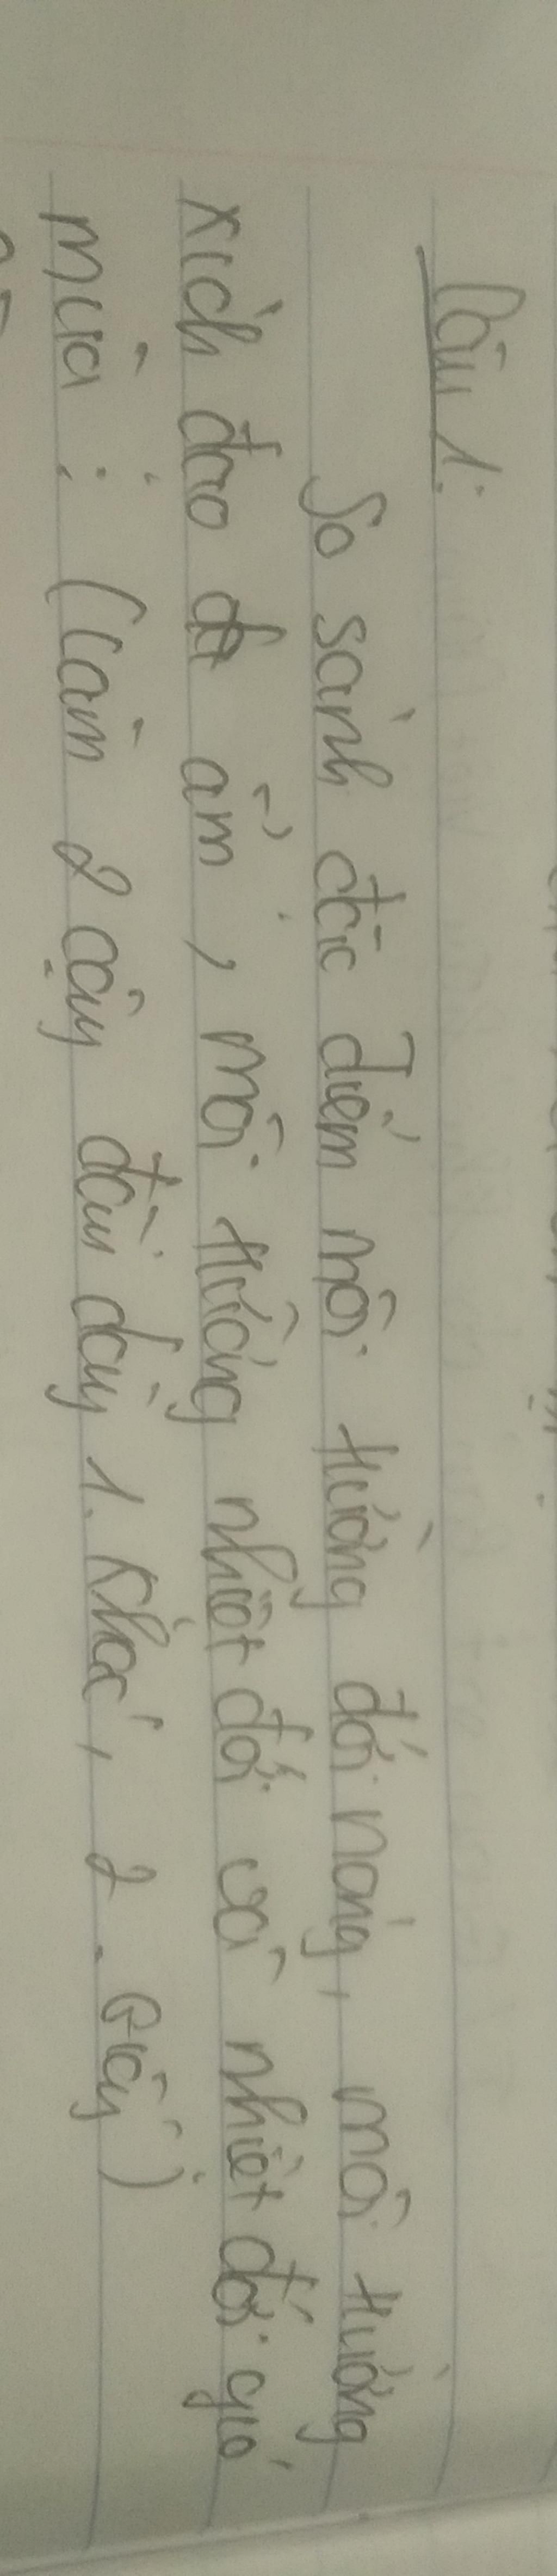 Câu 1:
So sánh đặc điểm môi trường đới nóng, môi trường
xích đạo ẩm, môi trường nhiệt đới và nhiệt đới gió
mùa: (Làm 2 đầy đủ 1. Khác, 2. Giống)